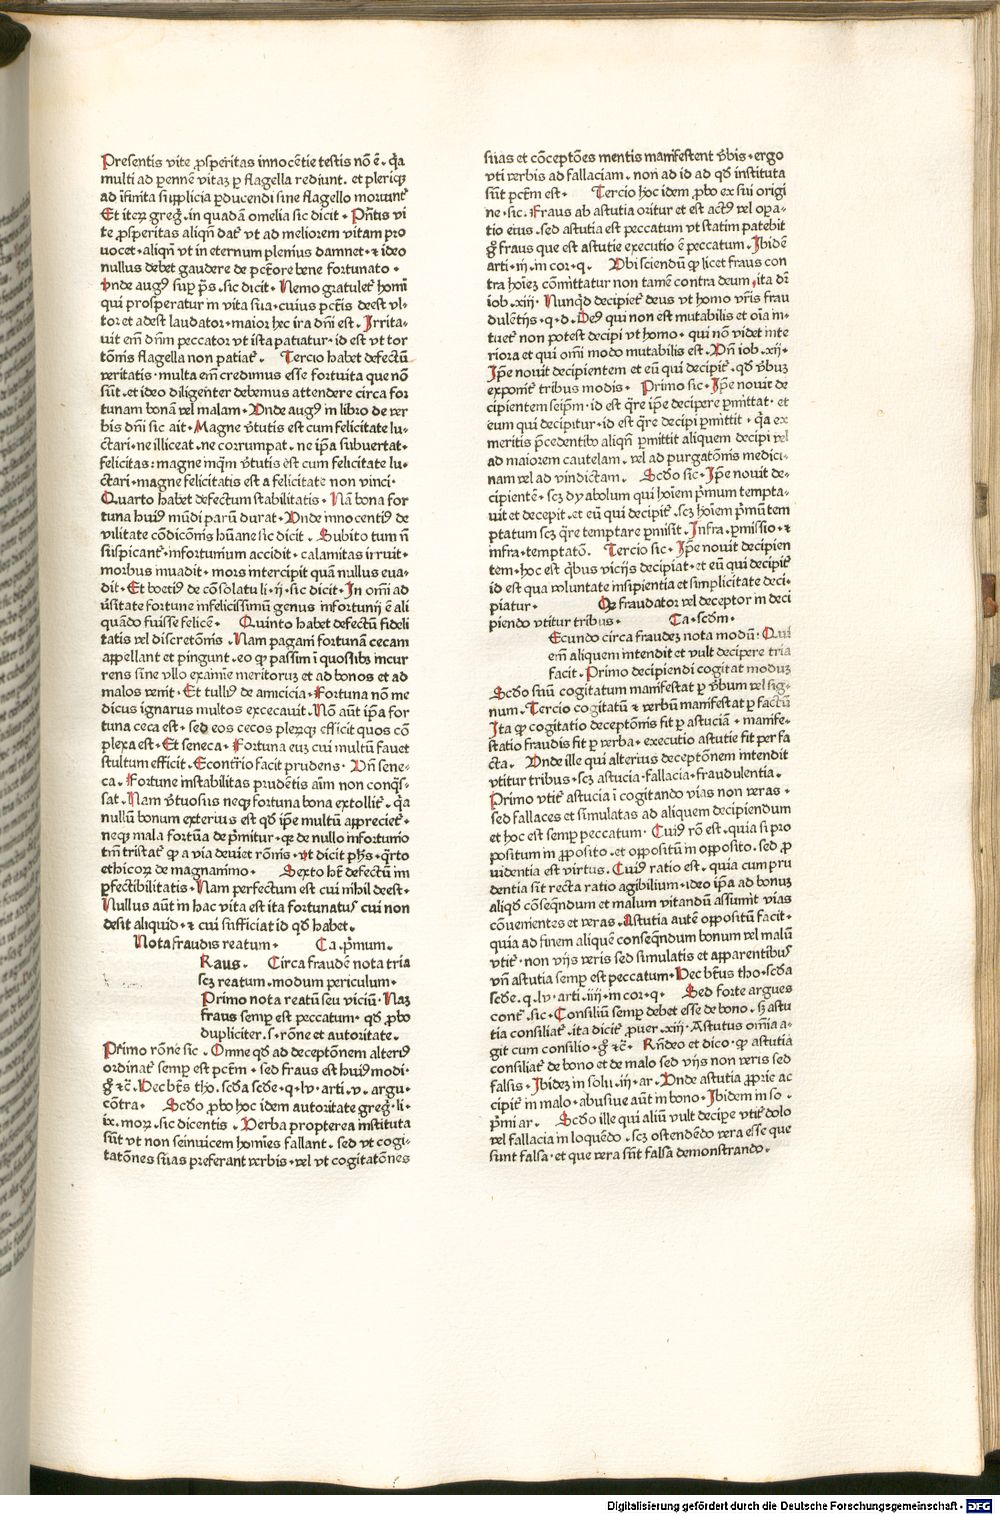 Presentis vite ꝓsperitas innocētie testis nō ē. q̇a
multi ad ꝑennē vitaȝ ꝑ flagella rediunt. et pleriqȝ
ad īfinita supplicia ꝑducendi sine flagello moriunt᷑
Et iteꝝ greg᷒. in quadā omelia sic dicit. Pn̄tis vi
te ꝓsperitas aliqn̄ dat᷑ vt ad meliorem vitam pro
vocet. aliqn̄ vt in eternum plenius damnet. ⁊ ideo
nullus debet gaudere de pctōre bene fortunato.
Vnde aug᷒ suꝑ ps̄. sic dicit. Nemo gratulet᷑ homi
qui prosperatur in vita sua. cuius pctīs deest vl-
tor et adest laudator. maior hec ira dn̄i est. Irrita-
uit em̄ dn̄m peccator vt ista patiatur. id est vt cor
tōnis flagella non patiat᷑. Tercio habet defectū
veritatis. multa em̄ credimus esse fortuita que nō
sūt. et ideo diligenter debemus attendere circa for
tunam bonā vel malam. Vnde aug᷒ in libro de ver
bis dn̄i sic ait. Magne v̄tutis est cum felicitate lu-
ctari. ne illiceat. ne corrumpat. ne ip̄a subuertat.
felicitas: magne inqȝ v̄tutis est cum felicitate lu-
ctari. magne felicitatis est a felicitate non vinci.
Quarto habet defectum stabilitatis. Nā bona for
tuna hui᷒ mūdi parū durat. Vnde innocenti᷒ de
vilitate cōdicōnis hūane sic dicit. Subito cum n̄
suspicant᷑. infortunium accidit. calamitas irruit.
morbus inuadit. mors intercipit quā nullus eua-
dit. Et boeti᷒ de cōsolatu li. ij. sic dicit. In om̄i ad
ūsitate fortune infelicissimū genus infortunij ē ali
quādo fuisse felicē. Quinto habet defectū fideli
tatis vel discretōnis. Nam pagani fortunā cecam
appellant et pingunt. eo ꝙ passim ī quoslibȝ incur
rens sine vllo examine meritoruȝ et ad bonos et ad
malos venit. Et tulli᷒ de amicicia. Fortuna nō me
dicus ignarus multos excecauit. Nō aūt ip̄a for
tuna ceca est. sed eos cecos pleꝝqȝ efficit quos cō
plexa est. Et seneca. Fortuna euȝ cui multū fauet
stultum efficit. Econtrīo facit prudens. Vn̄ sene-
ca. Fortune instabilitas prudētis aīm non conq̇s-
sat. Nam v̄tuosus neqȝ fortuna bona extollit᷑. q̇a
nullū bonum exterius est qd̄ ip̄e multū appreciet᷑.
neqȝ mala fortūa deṗmitur. qȝ de nullo infortunio
tm̄ tristat᷑ ꝙ a via deuiet rōnis. vt dicit ph̄s. q̇rto
ethicoꝝ de magnanimo. Sexto hȝ defectū im
ꝑfectibilitatis. Nam perfectum est cui nihil deest.
Nullus aūt in hac vita est ita fortunatus cui non
desit aliquid. ⁊ cui sufficiat id qd̄ habet.
Nota fraudis reatum. Ca. ṗmum.
Raus. Circa fraudē nota tria
scȝ reatum. modum periculum.
Primo nota reatū seu viciū. Naȝ
fraus semꝑ est peccatum. qd̄ ꝓbo
dupliciter. s. rōne et autoritate.
Primo rōne sic. Omne qd̄ ad deceptōnem alteri᷒
ordinat᷑ semꝑ est pctm̄. sed fraus est hui᷒modi.
g̊ ⁊c̄. Hec bt̄s tho. scd̄a scd̄e. q. lv. arti. v. argu.
cōtra. Scd̄o ꝓbo hoc idem autoritate greg᷒. li.
ix. moꝝ. sic dicentis. Verba propterea instituta
sūt vt non seinuicem homīes fallant. sed vt cogi-
tatōnes suas preferant verbis. vel vt cogitatōnes
suas et cōceptōes mentis manifestent v̄bis. ergo
vti verbis ad fallaciam. non ad id ad qd̄ instituta
sūt pctm̄ est. Tercio hoc idem ꝓbo ex sui origi
ne. sic. Fraus ab astutia oritur et est act᷒ vel oꝑa-
tio eius. sed astutia est peccatum vt statim patebit
g̊ fraus que est astutie executio ē peccatum. Ibidē
arti. iij. in cor. q. Vbi sciendū ꝙ licet fraus con
tra hoīeȝ cōmittatur non tamē contra deum. ita dr̄
iob. xiij. Nunqd̄ decipiet᷑ deus vt homo vr̄is frau
dulētijs. q. d. De᷒ qui non est mutabilis et oīa in-
tuet᷑ non potest decipi vt homo. qui nō videt inte
riora et qui om̄i modo mutabilis est. Vn̄ iob. xij.
Ip̄e nouit decipientem et eū qui decipit᷑. qd̄ v̄buȝ
exponit᷑ tribus modis. Primo sic. Ip̄e nouit de
cipientem seip̄m. id est q̇re ip̄e decipere ꝑmittat. et
eum qui decipitur. id est q̇re decipi ꝑmittit. q̇a ex
meritis p̄cedentibȝ aliqn̄ ꝑmittit aliquem decipi vel
ad maiorem cautelam. vel ad purgatōnis medici-
nam vel ad vindictam. Scd̄o sic. Ip̄e nouit de-
cipientē. scȝ dyabolum qui hoīem ṗmum tempta-
uit et decepit. et eū qui decipit᷑. scȝ hoīem ṗmū tem
ptatum scȝ q̇re temptare ꝑmisit. Infra. ꝑmissio. ⁊
infra. temptatō. Tercio sic. Ip̄e nouit decipien
tem. hoc est q̇bus vicijs decipiat. et eū qui decipit᷑
id est qua voluntate insipientia et simplicitate deci-
piatur. Qȝ fraudator vel deceptor in deci
piendo vtitur tribus. Ca. scd̄m.
Ecundo circa fraudeȝ nota modū. Qui
em̄ aliquem intendit et vult decipere tria
facit. Primo decipiendi cogitat moduȝ
Scd̄o suū cogitatum manifestat ꝑ v̄bum vel sig-
num. Tercio cogitatū ⁊ verbū manifestat ꝑ factū
Ita ꝙ cogitatio deceptōnis fit ꝑ astuciā. manife-
statio fraudis fit ꝑ verba. executio astutie fit per fa
cta. Vnde ille qui alterius deceptōnem intendit
vtitur tribus. scȝ astucia. fallacia. fraudulentia.
Primo vtit᷑ astucia ī cogitando vias non veras.
sed fallaces et simulatas ad aliquem decipiendum
et hoc est semꝑ peccatum. Cui᷒ rō est. quia si pro
positum in ꝓposito. et oppositū in opposito. sed ꝓ
uidentia est virtus. Cui᷒ ratio est. quia cum pru
dentia sit recta ratio agibilium. ideo ip̄a ad bonuȝ
aliqd̄ conseqn̄dum et malum vitandū assumit vias
cōuenientes et veras. Astutia autē oppositū facit.
quia ad finem aliquē conseqn̄dum bonum vel malū
vtit᷑. non vijs veris sed simulatis et apparentibus
vn̄ astutia semꝑ est peccatum. Hec bt̄us tho. scd̄a
scd̄e. q. lv. arti. iiij. in cor. q. Sed forte argues
cont᷑. sic. Consiliū semꝑ debet esse de bono. sȝ astu
tia consiliat᷑. ita dicit᷑ ꝓuer. xiij. Astutus om̄ia a-
git cum consilio. g̊ ⁊c̄. Rn̄deo et dico. ꝙ astutia
consiliat᷑ de bono et de malo sed vijs non veris sed
falsis. Ibideȝ in solu. iij. ar. Vnde astutia ꝓprie ac
cipit᷑ in malo. abusiue aūt in bono. Ibidem in so.
ṗmi ar. Scd̄o ille qui aliū vult deciꝑe vtit᷑ dolo
vel fallacia in loquēdo. scȝ ostendēdo vera esse que
sunt falsa. et que vera sūt falsa demonstrando.
Digitalisierung gefördert durch die Deutsche Forschungsgemeinschaft - DFG